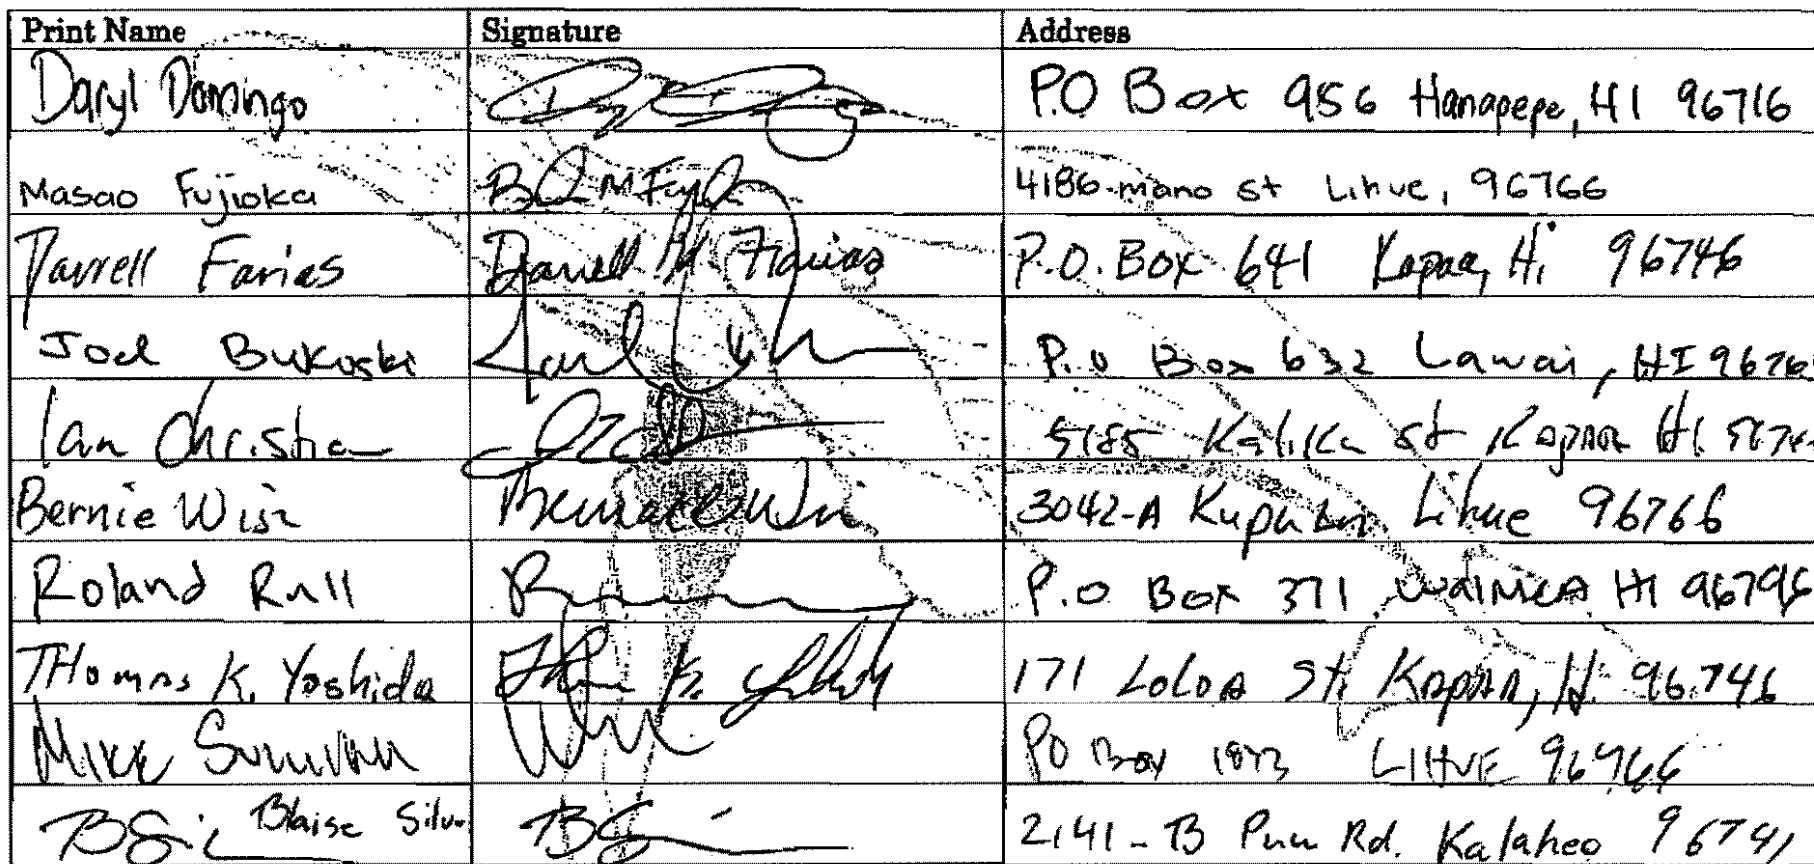 Print Name Signature Address
Daryl Domingo P.O Box 956 Hanapepe, HI 96716
Masao Fujioka 4186 mano st Lihue, 96766
Darrell Farias Darrell M. Farias P.O. Box 641 Kapaa, Hi 96746
Joel Bukoski P.O Box 632 Lawai, HI 9676
Ian Christian 5185 st Kapaa HI
Bernie Wise 3042-A Lihue 96766
Roland Rull P.O Box 371 Waimea HI 96796
THomas K. Yoshida 171 LoLoA St. Kapaa, H. 96746
Mike PO Box LIHUE 96766
Blaise Silv 2141-B Puu Rd. Kalaheo 96741